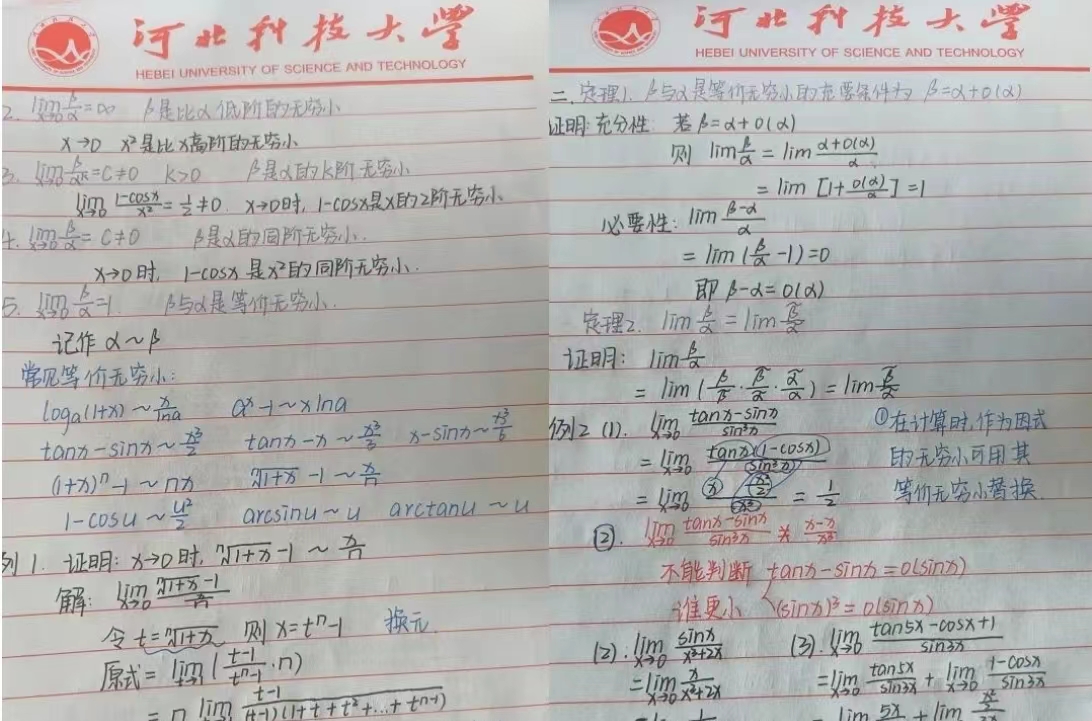 河北科技大学
HEBEI UNIVERSITY OF SCIENCE AND TECHNOLOGY
2. lim x→0 β/α = ∞ β是比α低阶的无穷小
x→0 x²是比x高阶的无穷小
3. lim x→0 β/αᵏ = C≠0 k>0 β是α的k阶无穷小
lim x→0 (1-cosx)/x² = 1/2 ≠0. x→0时, 1-cosx是x的2阶无穷小
4. lim x→0 β/α = C≠0 β是α的同阶无穷小.
x→0时, 1-cosx 是x²的同阶无穷小.
5. lim x→0 β/α = 1. β与α是等价无穷小.
记作 α~β
常见等价无穷小:
logₐ(1+x) ~ x/lna aˣ-1~xlna
tanx-sinx ~ x³/2 tanx-x ~ x³/3 x-sinx ~ x³/6
(1+x)ⁿ-1 ~ nx ⁿ√(1+x) -1 ~ x/n
1-cosu ~ u²/2 arcsinu ~ u arctanu ~ u
例1. 证明: x→0时, ⁿ√(1+x) -1 ~ x/n
解: lim x→0 (ⁿ√(1+x) -1)/(x/n)
令 t=ⁿ√(1+x), 则 x=tⁿ-1 换元
原式= lim t→1 ((t-1)/(tⁿ-1)·n)
= n lim t→1 (t-1)/((t-1)(1+t+t²+...+tⁿ⁻¹))
河北科技大学
HEBEI UNIVERSITY OF SCIENCE AND TECHNOLOGY
二. 定理1. β与α是等价无穷小的充要条件为 β=α+o(α)
证明: 充分性: 若 β=α+o(α)
则 lim β/α = lim (α+o(α))/α
= lim [1+o(α)/α] =1
必要性: lim (β-α)/α
= lim (β/α -1)=0
即 β-α=o(α)
定理2. lim β/α = lim β̃/α̃
证明: lim β/α
= lim (β/β̃ · β̃/α̃ · α̃/α) = lim β̃/α̃
例2 (1). lim x→0 (tanx-sinx)/sin³x ①在计算时,作为因式
= lim x→0 tanx(1-cosx)/sin³x 的无穷小可用其
= lim x→0 x(x²/2)/x³ = 1/2 等价无穷小替换.
②. lim x→0 (tanx-sinx)/sin³x ≠ (x-x)/x³
不能判断 tanx-sinx=o(sinx)
谁更小 (sinx)³=o(sinx)
(2). lim x→0 sinx/(x³+2x) (3). lim x→0 (tan5x-cosx+1)/sin3x
= lim x→0 x/(x³+2x) = lim x→0 tan5x/sin3x + lim x→0 (1-cosx)/sin3x